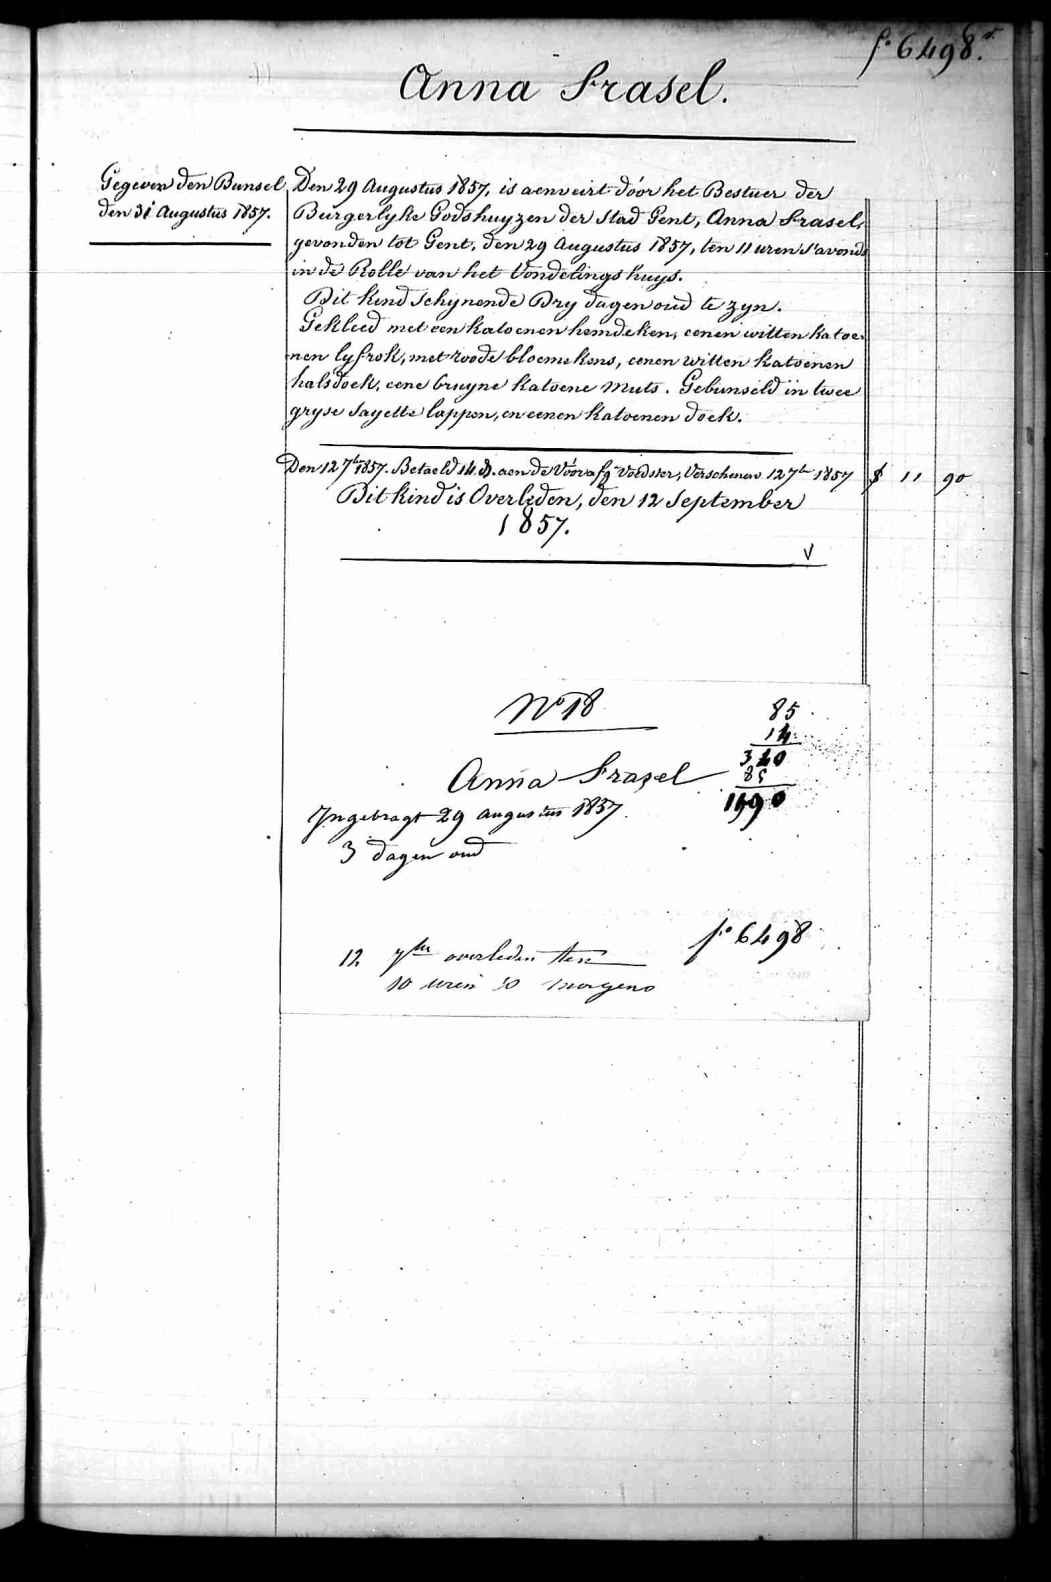 fo 6498.
Anna Frasel.
Gegeven den Bunsel
den 31 Augustus 1857.
Den 29 Augustus 1857, is aenveirt dóor het Bestuer der
Burgerlyke Godshuyzen der Stad Gent, Anna Frasel,
gevonden tot Gent, den 29 Augustus 1857, ten 11 uren s'avonds
in de Rolle van het Vondelings huys.
Dit kind schynende Dry dagen oud te zyn.
Gekleed met een katoenen hemdeken, eenen witten katoe-
nen lyfrok, met roode bloemekens, eenen witten katoenen
halsdoek, eene bruyne katoene muts. Gebunseld in twee
gryse sayette lappen, en eenen katoenen doek.
Den 12 7ber 1857. Betaeld 14 d. aen de Voedster, Verschenen 12 7ber 1857 11 90
Dit kind is Overleden, den 12 September
1857.
No 18
85
14
340
85
1190
Anna Frasel
Ingebragt 29 augustus 1857
3 dagen oud
fo 6498
12 7ber overleden ten
10 uren 's morgens